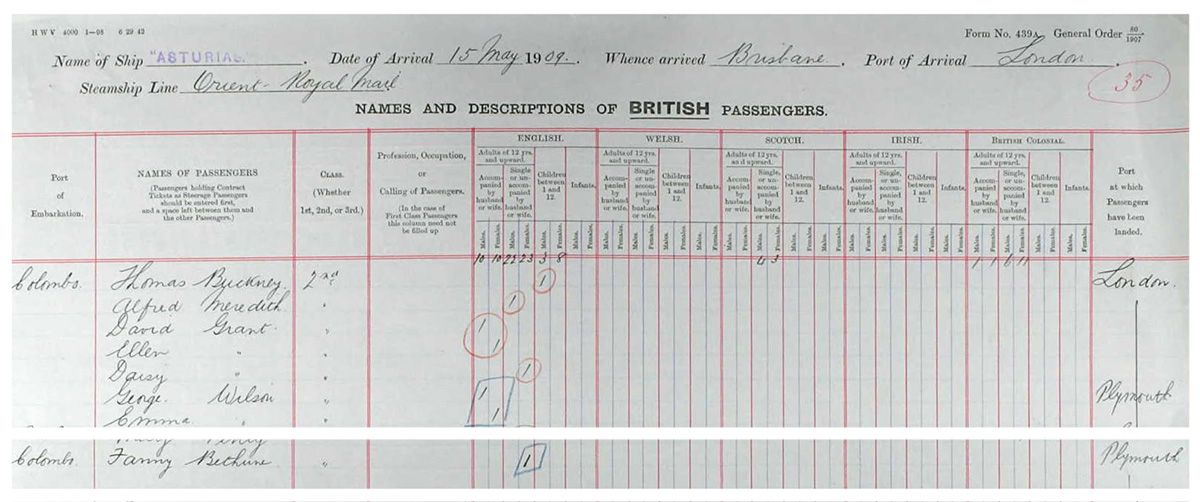 H W V 4000 1—08 6 29 42
Form No. 439A. General Order 80/1907
Name of Ship "ASTURIAS." Date of Arrival 15 May 1909. Whence arrived Brisbane. Port of Arrival London.
Steamship Line Orient-Royal Mail
35
NAMES AND DESCRIPTIONS OF BRITISH PASSENGERS.
Port of Embarkation.
NAMES OF PASSENGERS
(Passengers holding Contract Tickets as Steerage Passengers should be entered first, and a space left between them and the other Passengers.)
CLASS.
(Whether 1st, 2nd, or 3rd.)
Profession, Occupation, or Calling of Passengers.
(In the case of First Class Passengers this column need not be filled up
ENGLISH. WELSH. SCOTCH. IRISH. BRITISH COLONIAL.
Adults of 12 yrs. and upward. Adults of 12 yrs. and upward. Adults of 12 yrs. and upward. Adults of 12 yrs. and upward. Adults of 12 yrs. and upward.
Accompanied by husband or wife. Single or unaccompanied by husband or wife. Children between 1 and 12. Infants.
Accompanied by husband or wife. Single or unaccompanied by husband or wife. Children between 1 and 12. Infants.
Accompanied by husband or wife. Single or unaccompanied by husband or wife. Children between 1 and 12. Infants.
Accompanied by husband or wife. Single, or unaccompanied by husband or wife. Children between 1 and 12. Infants.
Accompanied by husband or wife. Single or unaccompanied by husband or wife. Children between 1 and 12. Infants.
Males. Females. Males. Females. Males. Females. Males. Females.
Males. Females. Males. Females. Males. Females. Males. Females.
Males. Females. Males. Females. Males. Females. Males. Females.
Males. Females. Males. Females. Males. Females. Males. Females.
Males. Females. Males. Females. Males. Females. Males. Females.
Port at which Passengers have been landed.
10 10 22 23 3 8 4 3 1 1 6 11
Colombo. Thomas Buckney. 2nd 1 London.
Alfred Meredith. " 1
David Grant. " 1
Ellen " " 1
Daisy " " 1
George. Wilson " 1 Plymouth
Emma. " " 1
Colombo. Fanny Bethune " 1 Plymouth